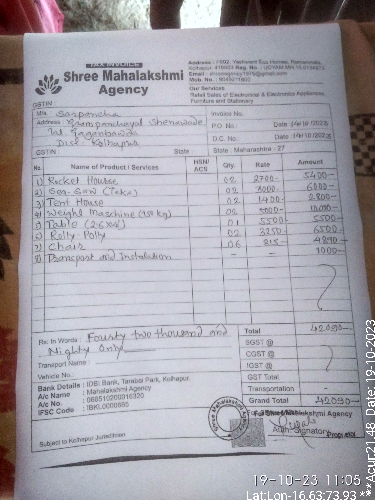 TAX INVOICE
Shree Mahalakshmi
Agency
Address : 
Kolhapur
Email : shreeagency1976@gmail.com
Mob. No. :
Our Services
Retail Sales of Electronics & Electronics Appliances,
Furniture and Stationary
GSTIN
M/s. Sarpancha
Address : Grampanchayat Shenawade
Tal. Gaganbawda
Dist. Kolhapur
Invoice No.
P.O. No. Date
D.C. No. Date
GSTIN : State : State : Maharashtra - 27
No. Name of Product / Services HSN/ACS Qty. Rate Amount
1) Rocket House 02 2700- 5400-
2) See-Saw 02 3000- 6000-
3) Tent House 02 1400- 2800-
4) Weight Maschine 02 5000-
5) Table (2.6x4) 01 5500- 5500-
6) Rolly-Polly 02 3250- 6500-
7) Chair 06 815- 4890-
8) Transport and Instalation - - 1000-
Rs. In Words : Fourty two thousand and
Nighty Only
Transport Name :
Vehicle No. :
Total 42090-
SGST @
CGST @
IGST @
GST Total
Transportation -
Grand Total 42090-
Bank Details : IDBI Bank, Tarabai Park, Kolhapur.
A/c Name : Mahalakshmi Agency
A/c No. :
IFSC Code :
For Shree Mahalakshmi Agency
Auth. Signatory
Proprietor
Subject to Kolhapur Jurisdiction
19-10-23 11:05
Lat:Lon-16.63:73.93 ***Acur:21.48, Date, 19-10-2023